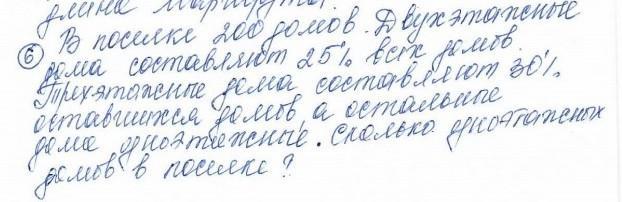 длина маршрута?
⑥ В поселке 200 домов. Двухэтажные
дома составляют 25% всех домов.
Трехэтажные дома составляют 30%
оставшихся домов, а остальные
дома одноэтажные. Сколько одноэтажных
домов в поселке?